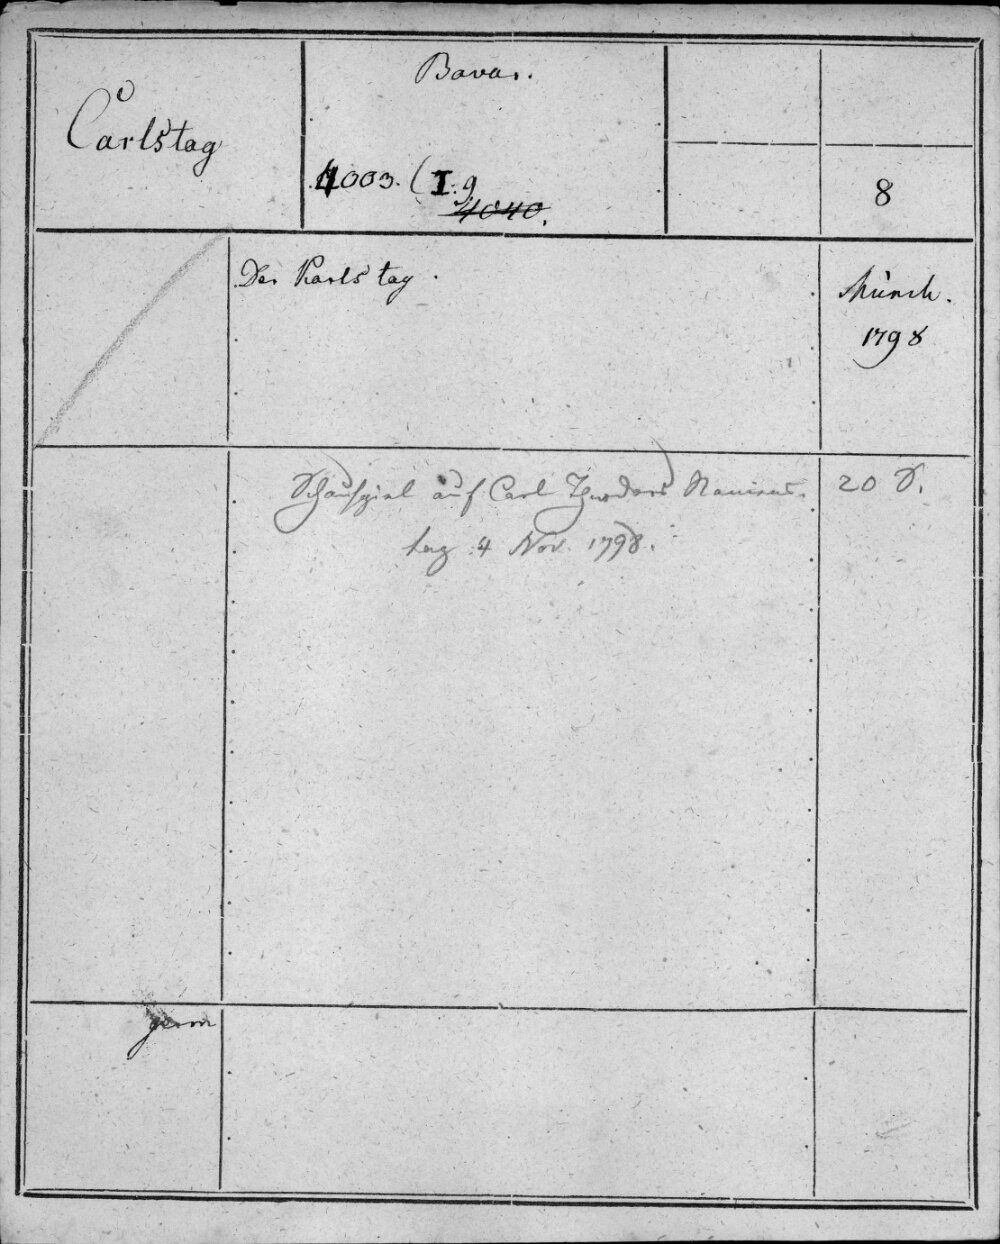 Carlstag
Bavar.
4003. (I. 9
4040.
8
Der Karls tag.
Münch.
1798
Schauspiel auf Carl Theodors Namens-
tag 4 Nov. 1798.
20 S.
germ